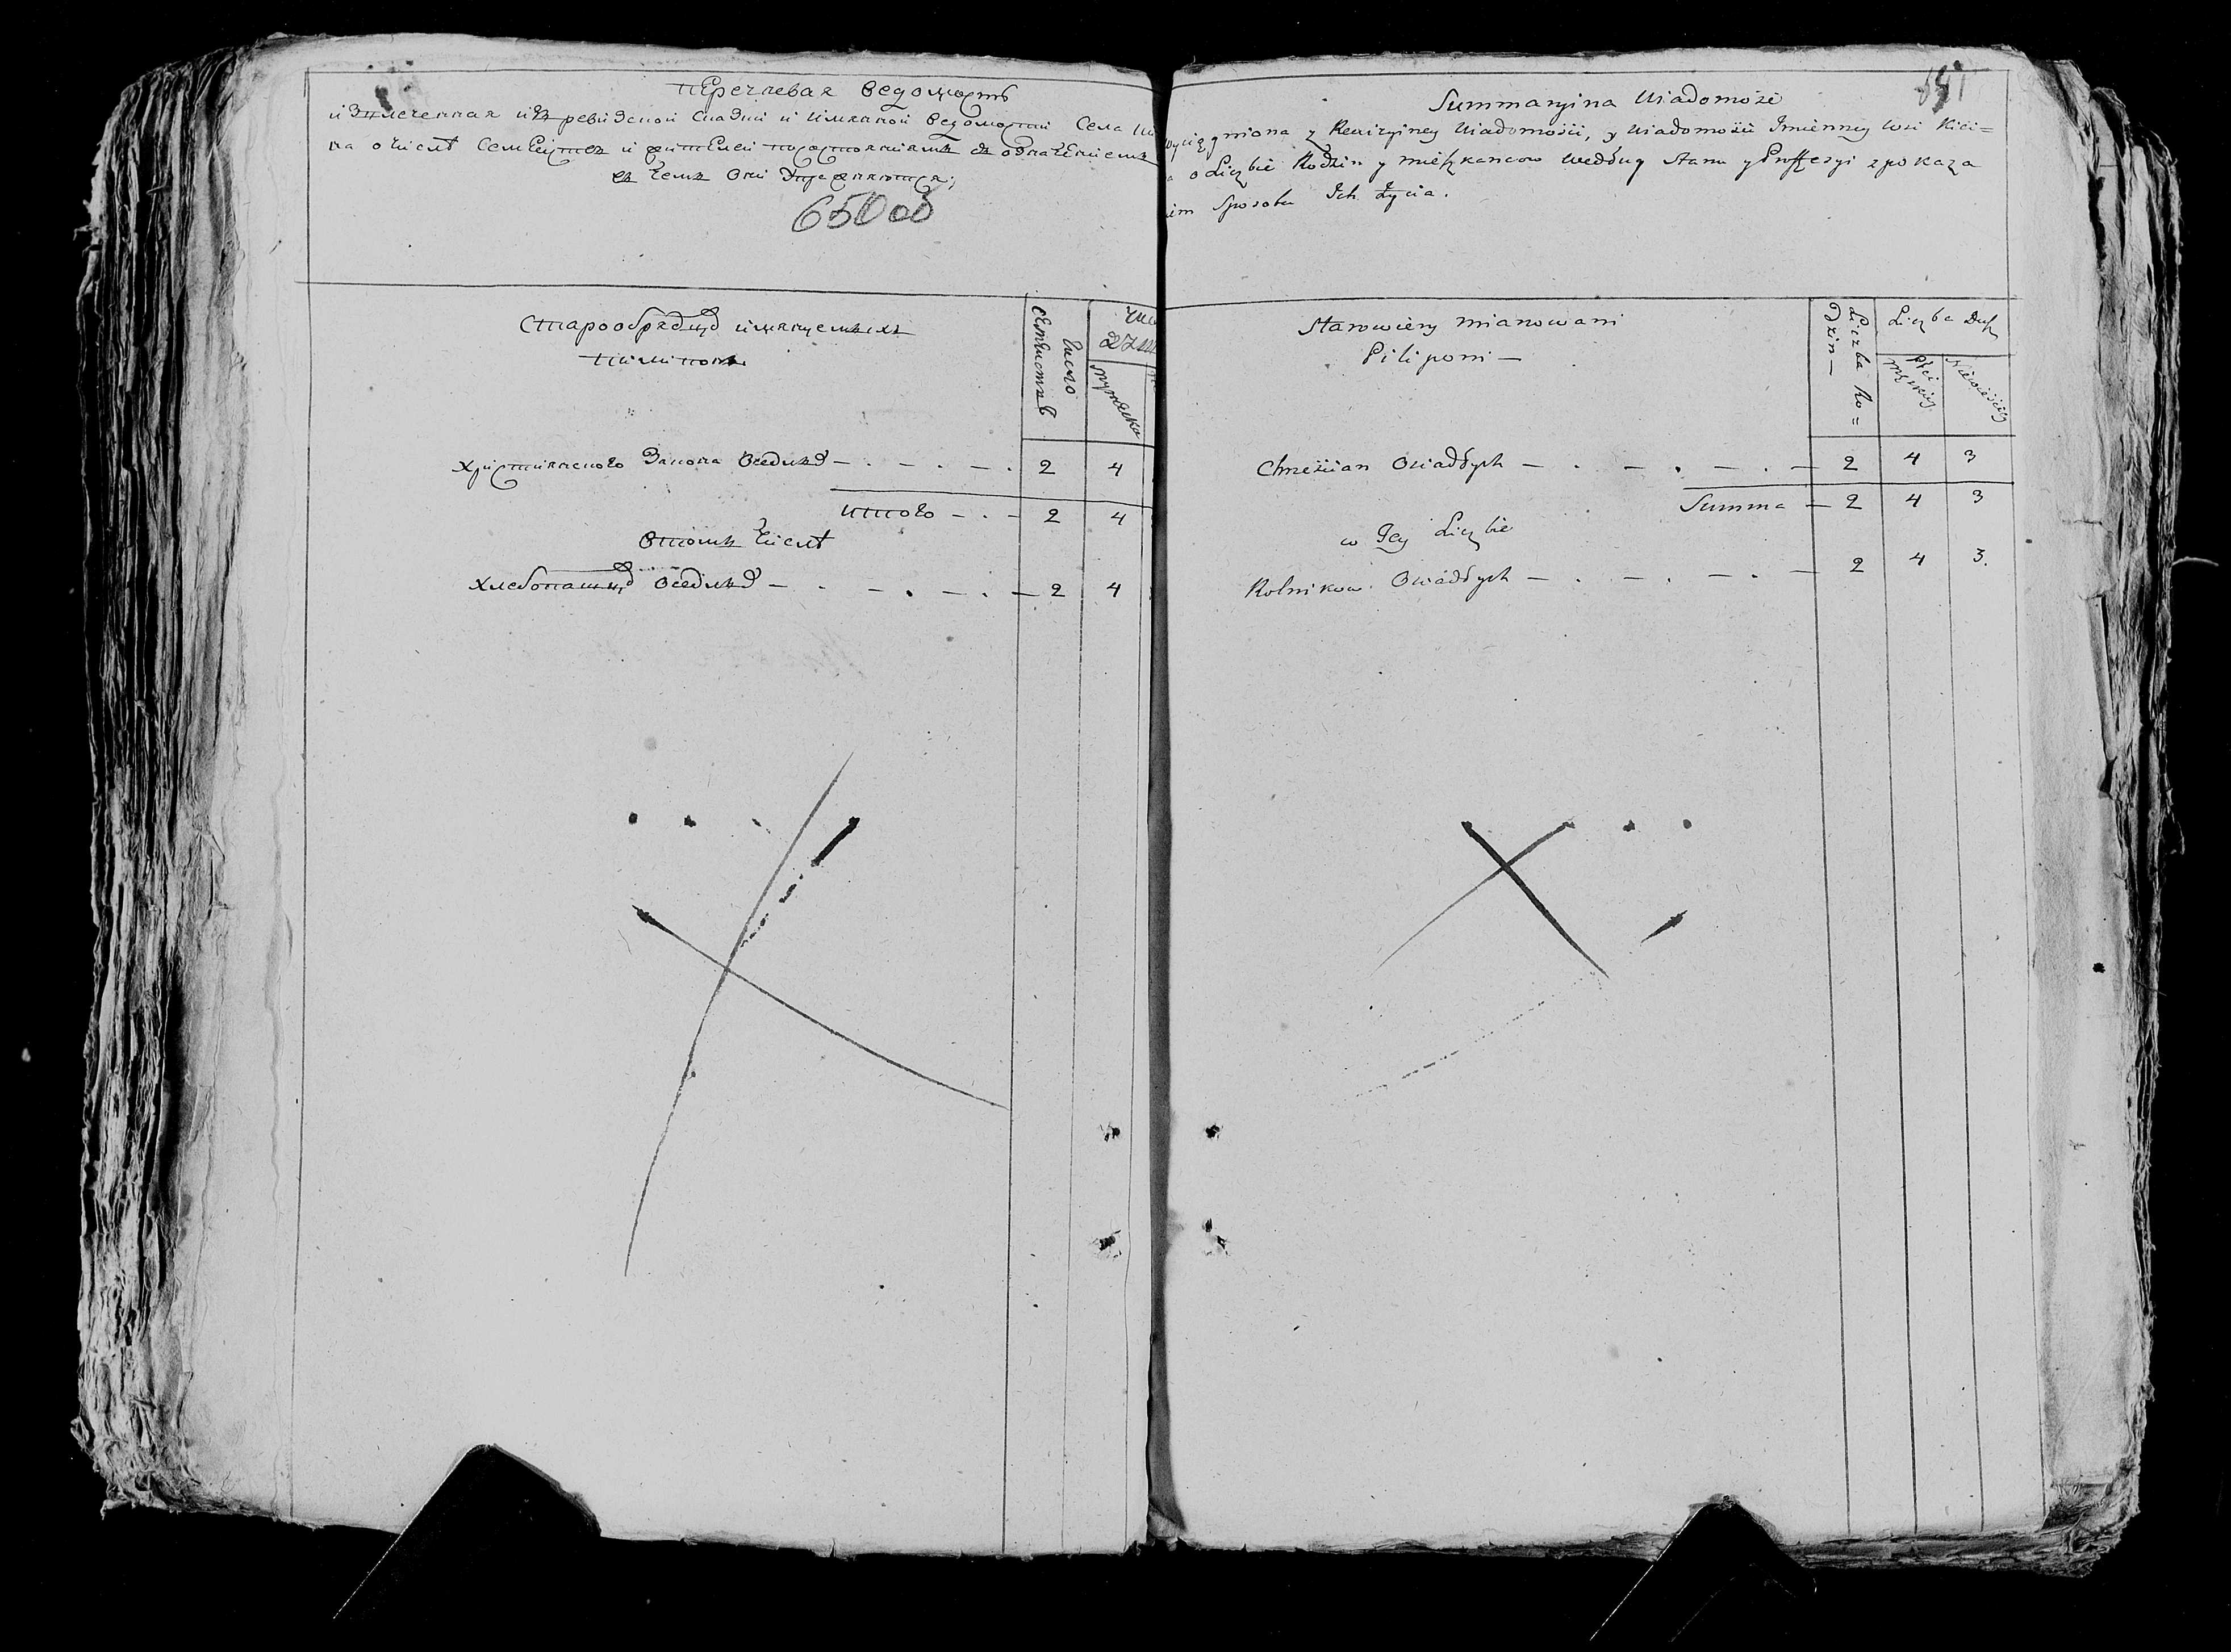 Перечневая ведомость
извлеченная из ревизской сказки и имянной ведомости Села
на о числѣ Семействъ и жителей по состояниямъ съ означениемъ
въ чемъ Они Упражняются;
Старообрядцовъ имянуемыхъ
Пилипонъ
Число
Семействъ
мужеска
Християнского Закона Оседлыхъ — . — . — . 2 4
Итого — . — 2 4
Втомъ Числѣ
Хлебопашцовъ Оседлыхъ — . — . — . — 2 4
151
Summaryina Wiadomość
wyciągniona z Rewizyiney Wiadomości, y Wiadomości Imienney Wsi Kici=
a o Liczbie Rodzin y mieszkancow według Stanu y Proffesyi z pokaza
im Sposobu Ich Życia.
Starowiery mianowani
Pilipom —
Liczba Ro=
dzin —
Liczba Dusz
Płci
męzkiey
Niewieściey
Chrescian Osiadłych — . — . — . — 2 4 3
Summa — 2 4 3
w Jey Liczbie
Rolnikow Osiadłych — . — . — . — 2 4 3.